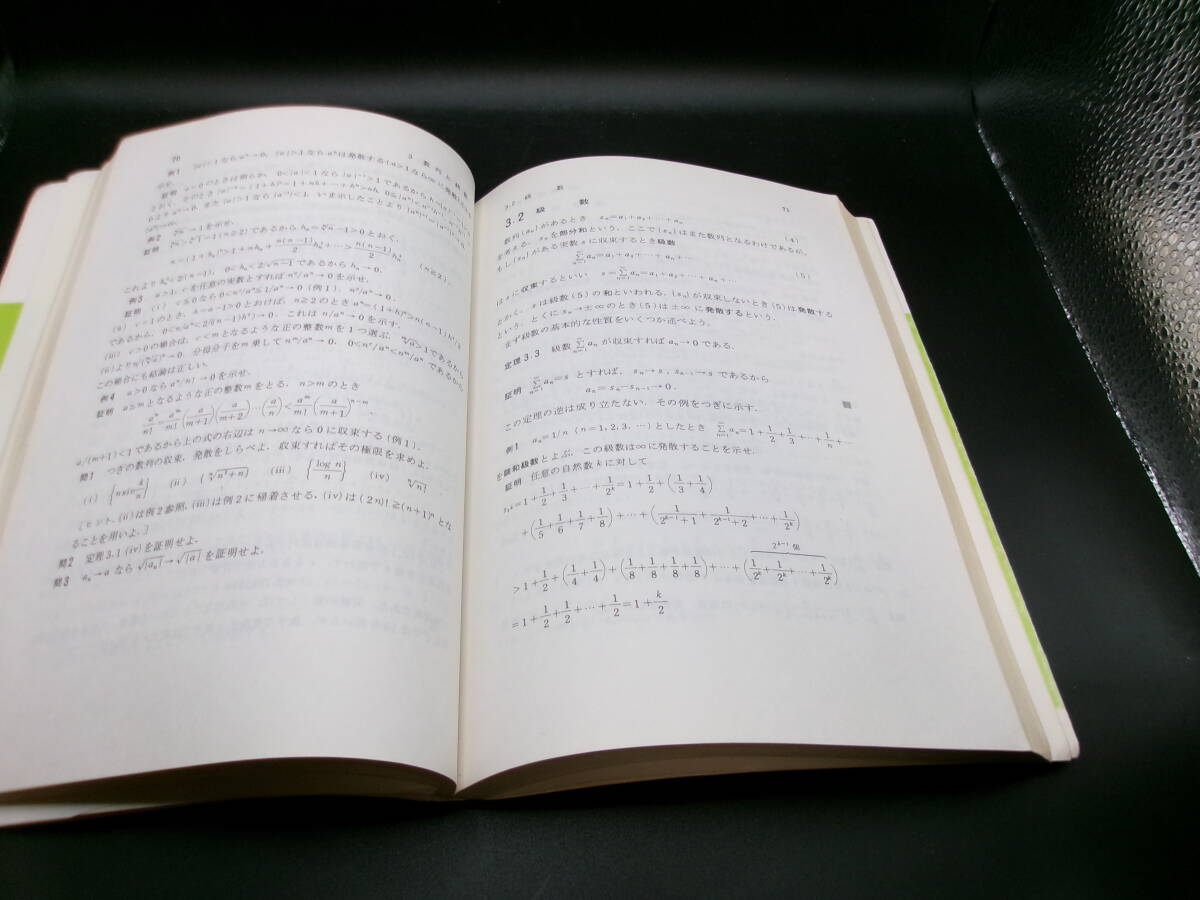 70
3 数列と級
例1 |a|<1ならaⁿ→0, |a|>1ならaⁿは発散する(a>1なら∞に発散
示せ.
証明 a=0のときは明らか. 0<|a|<1なら|a|⁻¹>1であるからh=|a|⁻¹
とおく. このとき|a|⁻ⁿ=(1+h)ⁿ=1+nh+…+hⁿ>nh, 0≦|aⁿ|<
ゆえaⁿ→0. また|a|>1なら|a⁻¹|<1. いま示したことより
例2 ⁿ√n→1を示せ.
証明 ⁿ√n>ⁿ√1=1(n≧2)であるからhₙ=ⁿ√n−1>0とおく.
n=(1+hₙ)ⁿ=1+nhₙ+n(n−1)/2 hₙ²+…>n(n−1)/2 hₙ² (n≧2).
これよりhₙ²<2/(n−1), 0<hₙ<√2/√n−1であるからhₙ→0.
例3 a>1, cを任意の実数とすればnᶜ/aⁿ→0を示せ.
証明 (i) c≦0なら0<nᶜ/aⁿ≦1/aⁿ→0 (例1). nᶜ/aⁿ→0.
(ii) c=1のとき, h=a−1>0とおけば, n≧2のときaⁿ=(1+h)ⁿ>n(n−1)h²/2
であるから, 0<n/aⁿ<2/((n−1)h²)→0. これはn/aⁿ→0を示す.
(iii) c>0の場合は, c<mとなるような正の整数mを1つ選ぶ. ᵐ√a>1であるから
(ii)よりn/(ᵐ√a)ⁿ→0. 分母分子をm乗してnᵐ/aⁿ→0. 0<nᶜ/aⁿ<nᵐ/aⁿであるから
この場合にも結論は正しい.
例4 a>0ならaⁿ/n!→0を示せ.
証明 a≧mとなるような正の整数mをとる. n>mのとき
aⁿ/n!=aᵐ/m!(a/(m+1))(a/(m+2))…(a/n)<aᵐ/m!(a/(m+1))ⁿ⁻ᵐ.
a/(m+1)<1であるから上の式の右辺はn→∞なら0に収束する(例1).
問1 つぎの数列の収束, 発散をしらべよ. 収束すればその極限を求めよ.
(i) {n sin k/n} (ii) (ⁿ√n²+n) (iii) {log n/n} (iv) ⁿ√n!
[ヒント. (ii)は例2参照, (iii)は例2に帰着させる, (iv)は(2n)!≧(n+1)ⁿとな
ることを用いよ.]
問2 定理3.1(iv)を証明せよ.
問3 aₙ→aなら√|aₙ|→√|a|を証明せよ.
3.2 級 数
71
3.2 級 数
数列{aₙ}があるとき sₙ=a₁+a₂+…+aₙ (4)
を考える. sₙを部分和という. ここで{sₙ}はまた数列となるわけであるが,
もし{sₙ}がある実数sに収束するとき級数
∞∑n=1 aₙ=a₁+a₂+…+aₙ+… (5)
はsに収束するといい s=∞∑n=1 aₙ=a₁+a₂+…+aₙ+…
とかく. sは級数(5)の和といわれる. {sₙ}が収束しないとき(5)は発散する
という. とくにsₙ→±∞のとき(5)は±∞に発散するという.
まず級数の基本的な性質をいくつか述べよう.
定理3.3 級数∞∑n=1 aₙが収束すればaₙ→0である.
証明 ∞∑n=1 aₙ=sとすれば, sₙ→s, sₙ₋₁→sであるから
aₙ=sₙ−sₙ₋₁→0.
この定理の逆は成り立たない. その例をつぎに示す.
例1 aₙ=1/n (n=1, 2, 3, …)としたとき ∞∑n=1 aₙ=1+1/2+1/3+…+1/n+…
を調和級数とよぶ. この級数は∞に発散することを示せ.
証明 任意の自然数kに対して
s₂ᵏ=1+1/2+1/3+…+1/2ᵏ=1+1/2+(1/3+1/4)
+(1/5+1/6+1/7+1/8)+…+(1/(2ᵏ⁻¹+1)+1/(2ᵏ⁻¹+2)+…+1/2ᵏ)
2ᵏ⁻¹個
>1+1/2+(1/4+1/4)+(1/8+1/8+1/8+1/8)+…+(1/2ᵏ+1/2ᵏ+…+1/2ᵏ)
=1+1/2+1/2+…+1/2=1+k/2